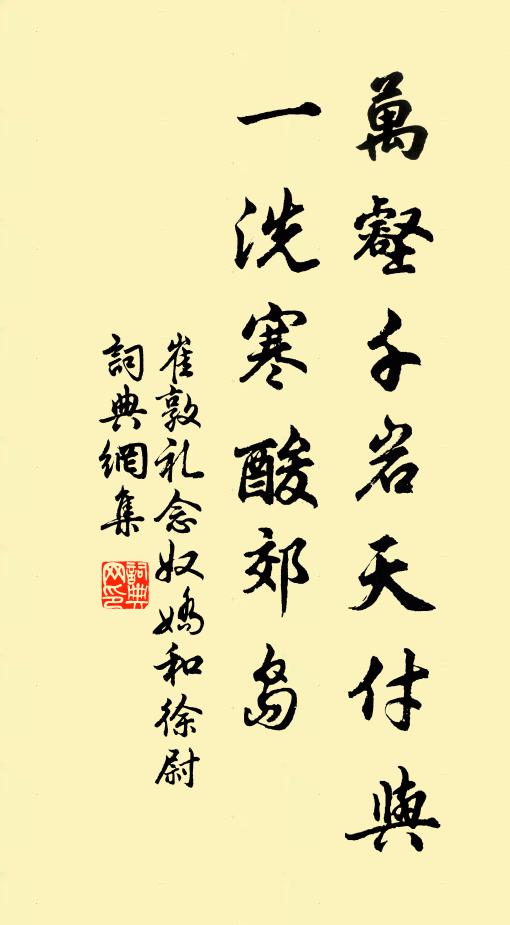 萬壑千岩天付與
一洗寒酸郊島
崔敦礼念奴嬌和徐尉
詞典網集
詞典网印